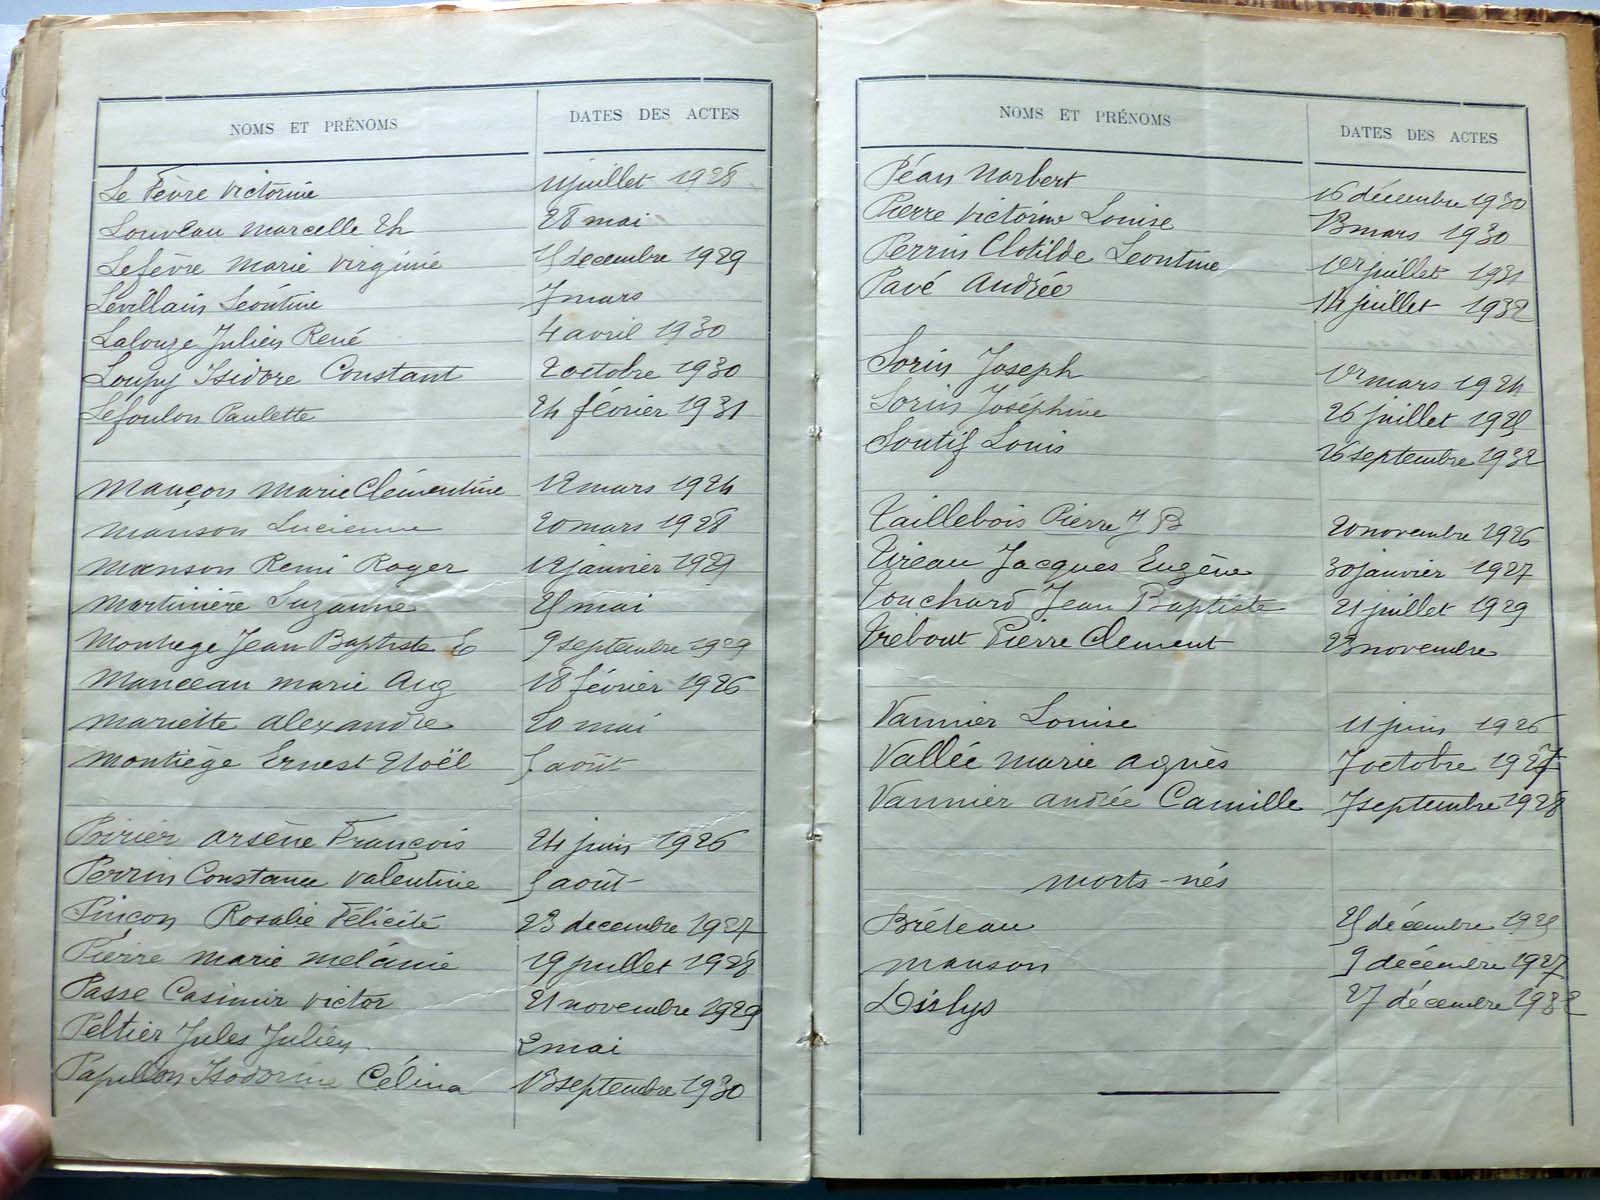 NOMS ET PRÉNOMS DATES DES ACTES
Le Fèvre Victorine 11 juillet 1928
Louveau Marcelle Th 28 mai
Lefèvre Marie Virginie 15 décembre 1929
Levillain Léontine 7 mars
Lalouze Julien René 4 avril 1930
Loupy Isidore Constant 2 octobre 1930
Lefoulon Paulette 24 février 1931
Mançon Marie Clémentine 12 mars 1924
Manson Lucienne 20 mars 1928
Manson Remi Roger 12 janvier 1929
Martinière Suzanne 25 mai
Montiege Jean Baptiste E 9 septembre 1929
Manceau Marie Aug 18 février 1926
Mariette Alexandre 20 mai
Montiège Ernest Noël 5 août
Poirier Arsène François 24 juin 1926
Perrin Constance Valentine 5 août
Pinçon Rosalie Félicité 23 decembre 1927
Pierre Marie Mélanie 19 juillet 1928
Passe Casimir Victor 21 novembre 1929
Peltier Jules Julien 2 mai
Papillon Isodorine Célina 13 septembre 1930
NOMS ET PRÉNOMS DATES DES ACTES
Péan Norbert 16 décembre 1930
Pierre Victorine Louise 13 mars 1930
Perrin Clotilde Leontine 1er juillet 1931
Pavé Andrée 14 juillet 1932
Sorin Joseph 1er mars 1924
Sorin Joséphine 26 juillet 1925
Soutif Louis 26 septembre 1932
Taillebois Pierre J B 20 novembre 1926
Tireau Jacques Eugène 30 janvier 1927
Touchard Jean Baptiste 21 juillet 1929
Trebout Pierre Clement 23 novembre
Vannier Louise 11 juin 1926
Vallée Marie Agnès 7 octobre 1927
Vannier Andrée Camille 7 septembre 1928
Morts-nés
Bréteau 25 décembre 1925
Manson 9 décembre 1927
Dislys 27 décembre 1932